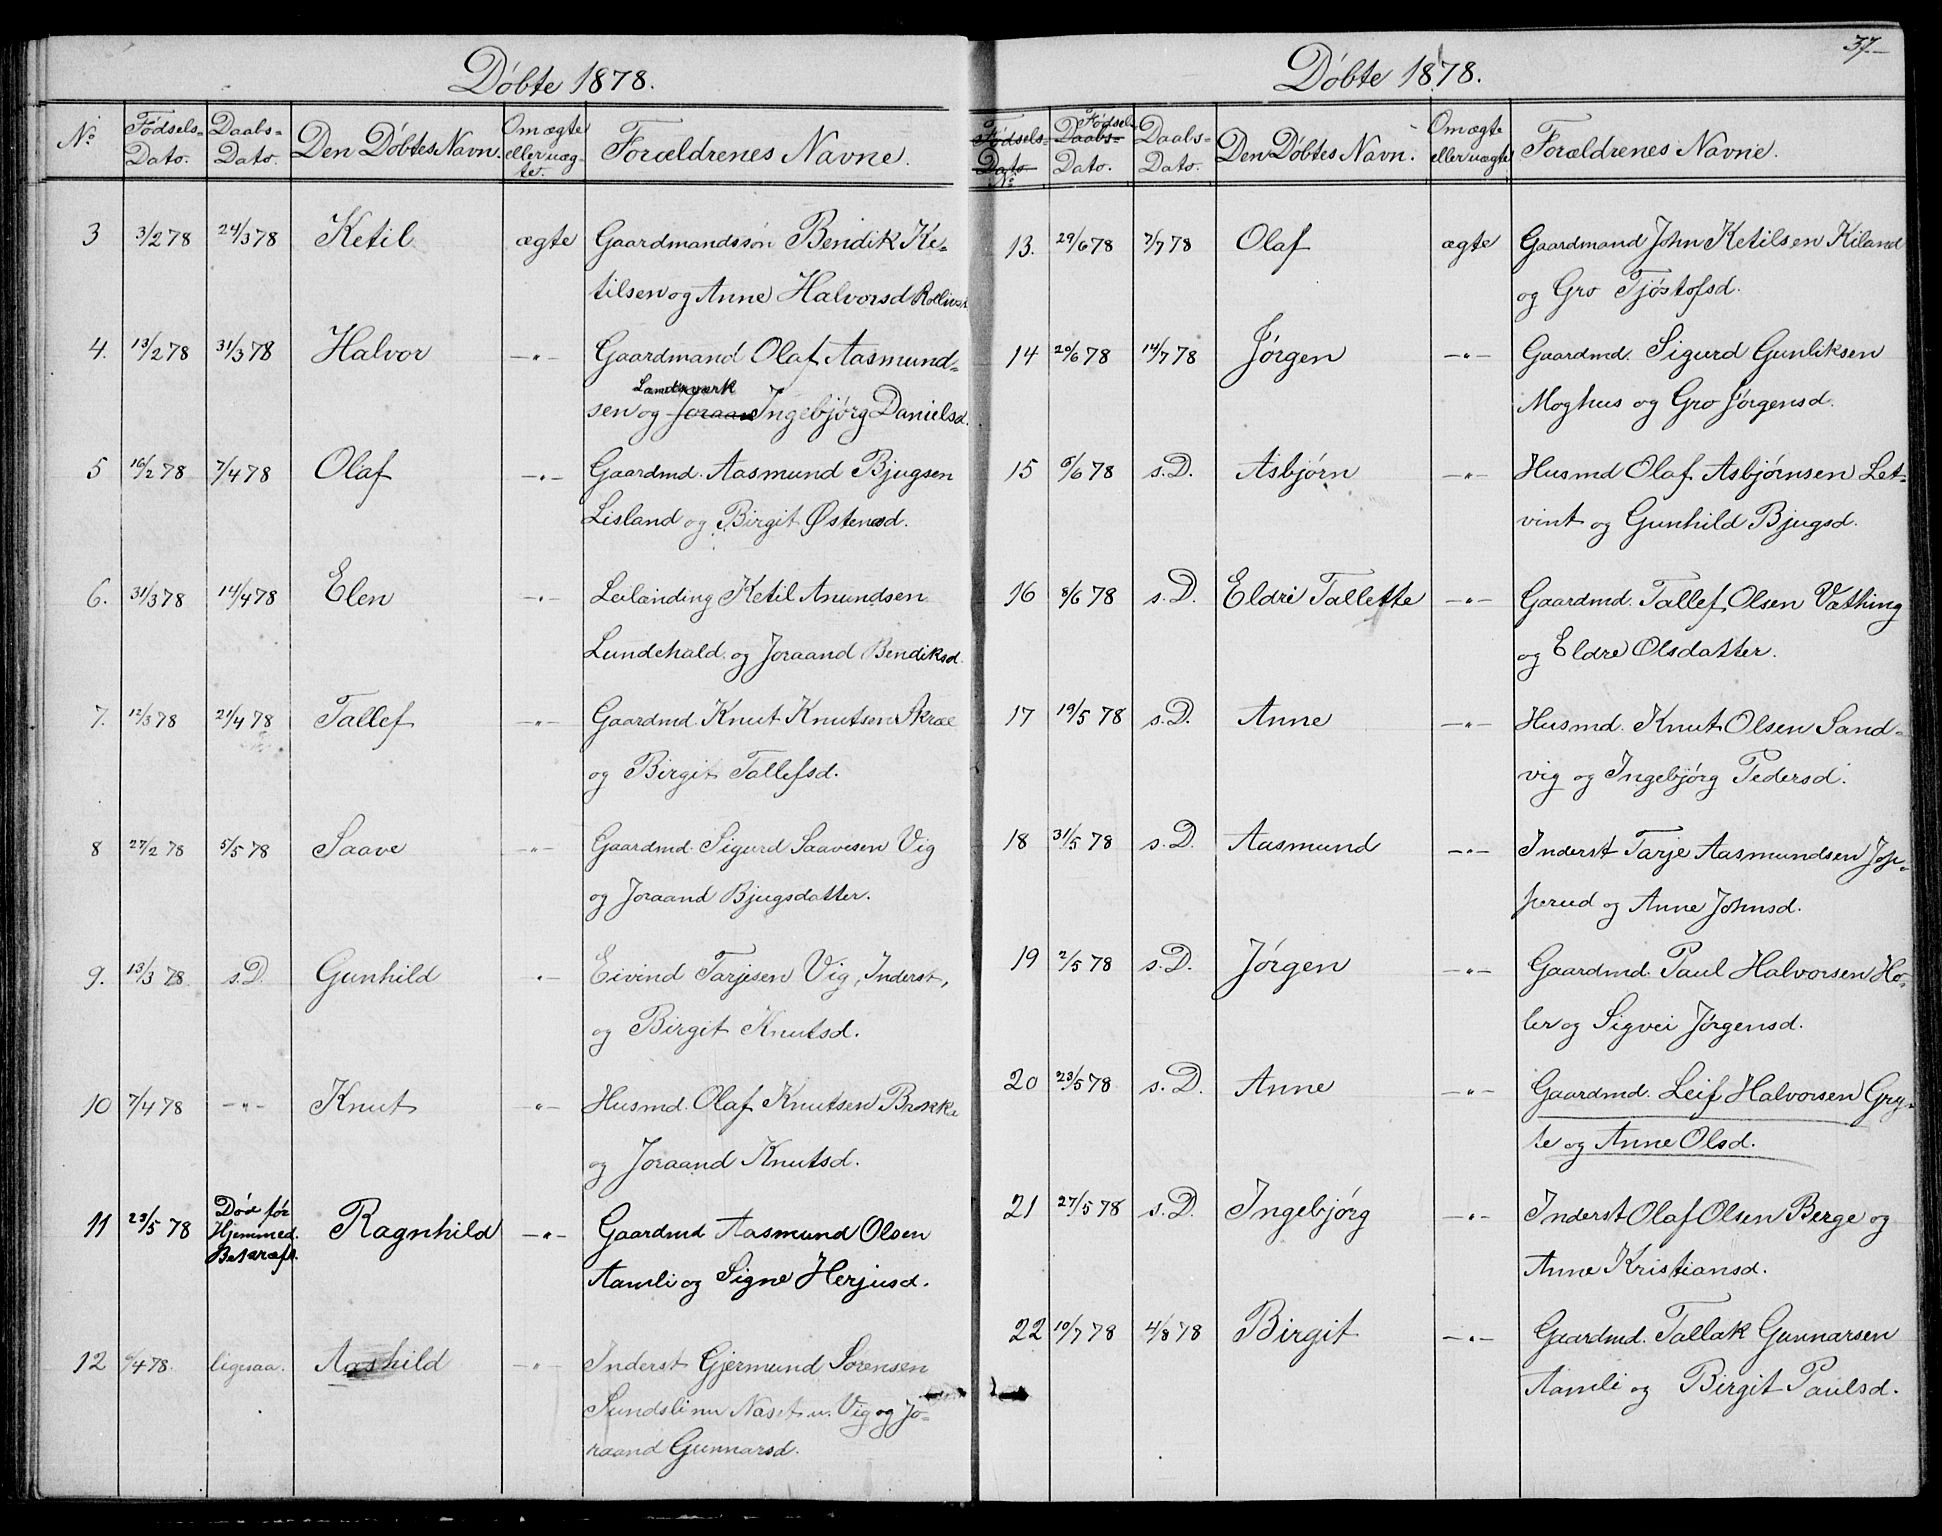 Døbte 1878.
No Fødsels-Dato. Daabs-Dato. Den Døbtes Navn. Om ægte eller uægte. Forældrenes Navne.
3 3/2 78 24/3 78 Ketil ægte Gaardmandssøn Bendik Ke-
tilsen og Anne Halvorsd
4. 13/2 78 31/3 78 Halvor -"- Gaardmand Olaf Aasmund-
Landsværk
sen og Joraan Ingebjørg Danielsd.
5 16/2 78 7/4 78 Olaf -"- Gaardmd. Aasmund Bjugsen
Lisland og Birgit Østensd.
6. 31/3 78 14/4 78 Elen -"- Leilænding Ketil Anundsen
Lundehald og Joraand Bendiksd.
7. 12/3 78 21/4 78 Tallef -"- Gaardmd. Knut Knutsen Skraa
og Birgit Tallefsd.
8 27/2 78 5/5 78 Saave -"- Gaardmd. Sigurd Saavesen Vig
og Joraand Bjugsdatter.
9. 13/3 78 s.D. Gunhild -"- Eivind Tarjesen Vig, Inderst,
og Birgit Knutsd.
10 7/4 78 -"- Knut -"- Husmd. Olaf Knutsen Brokke
og Joraand Knutsd.
11 23/5 78 Død før Hjemmed. Bekræft. Ragnhild -"- Gaardmd Aasmund Olsen
Aamli og Signe Herjusd.
12 /4 78. ligesaa. Aashild -"- Inderst Gjermund Sørensen
Sundsli nu Næset u. Vig og Jo-
raand Gunnarsd.
37
Døbte 1878.
Fødsels-Dato No Daabs- Fødsels Dato. Daabs-Dato. Den Døbtes Navn. Om ægte eller uægte Forældrenes Navne.
13. 29/6 78 7/7 78 Olaf ægte Gaardmand John Ketilsen Kiland
og Gro Tjøstofsd.
14 20/6 78 14/7 78 Jørgen -"- Gaardmd. Sigurd Gunliksen
Moghus og Gro Jørgensd.
15 /6 78 s.D. Asbjørn -"- Husmd Olaf Asbjørnsen Let-
vint og Gunhild Bjugsd.
16 8/6 78 s.D. Eldri Tallette -"- Gaardmd. Tallef Olsen Væthing
og Eldre Olsdatter.
17 19/5 78 s.D. Anne -"- Husmd. Knut Olsen Sand-
vig og Ingebjørg Pedersd.
18 31/5 78 s.D. Aasmund -"- Inderst Tarje Aasmundsen Jop-
perud og Anne Johnsd.
19 2/5 78 s.D. Jørgen -"- Gaardmd. Paul Halvorsen Ho-
ler og Sigvei Jørgensd.
20 23/5 78 s.D. Anne -"- Gaardmd. Leif Halvorsen Gry-
te og Anne Olsd.
21 27/5 78 s.D. Ingebjørg -"- Inderst Olaf Olsen Berge og
Anne Kristiansd.
22 10/7 78 4/8 78 Birgit -"- Gaardmd. Tallak Gunnarsen
Aamli og Birgit Paulsd.